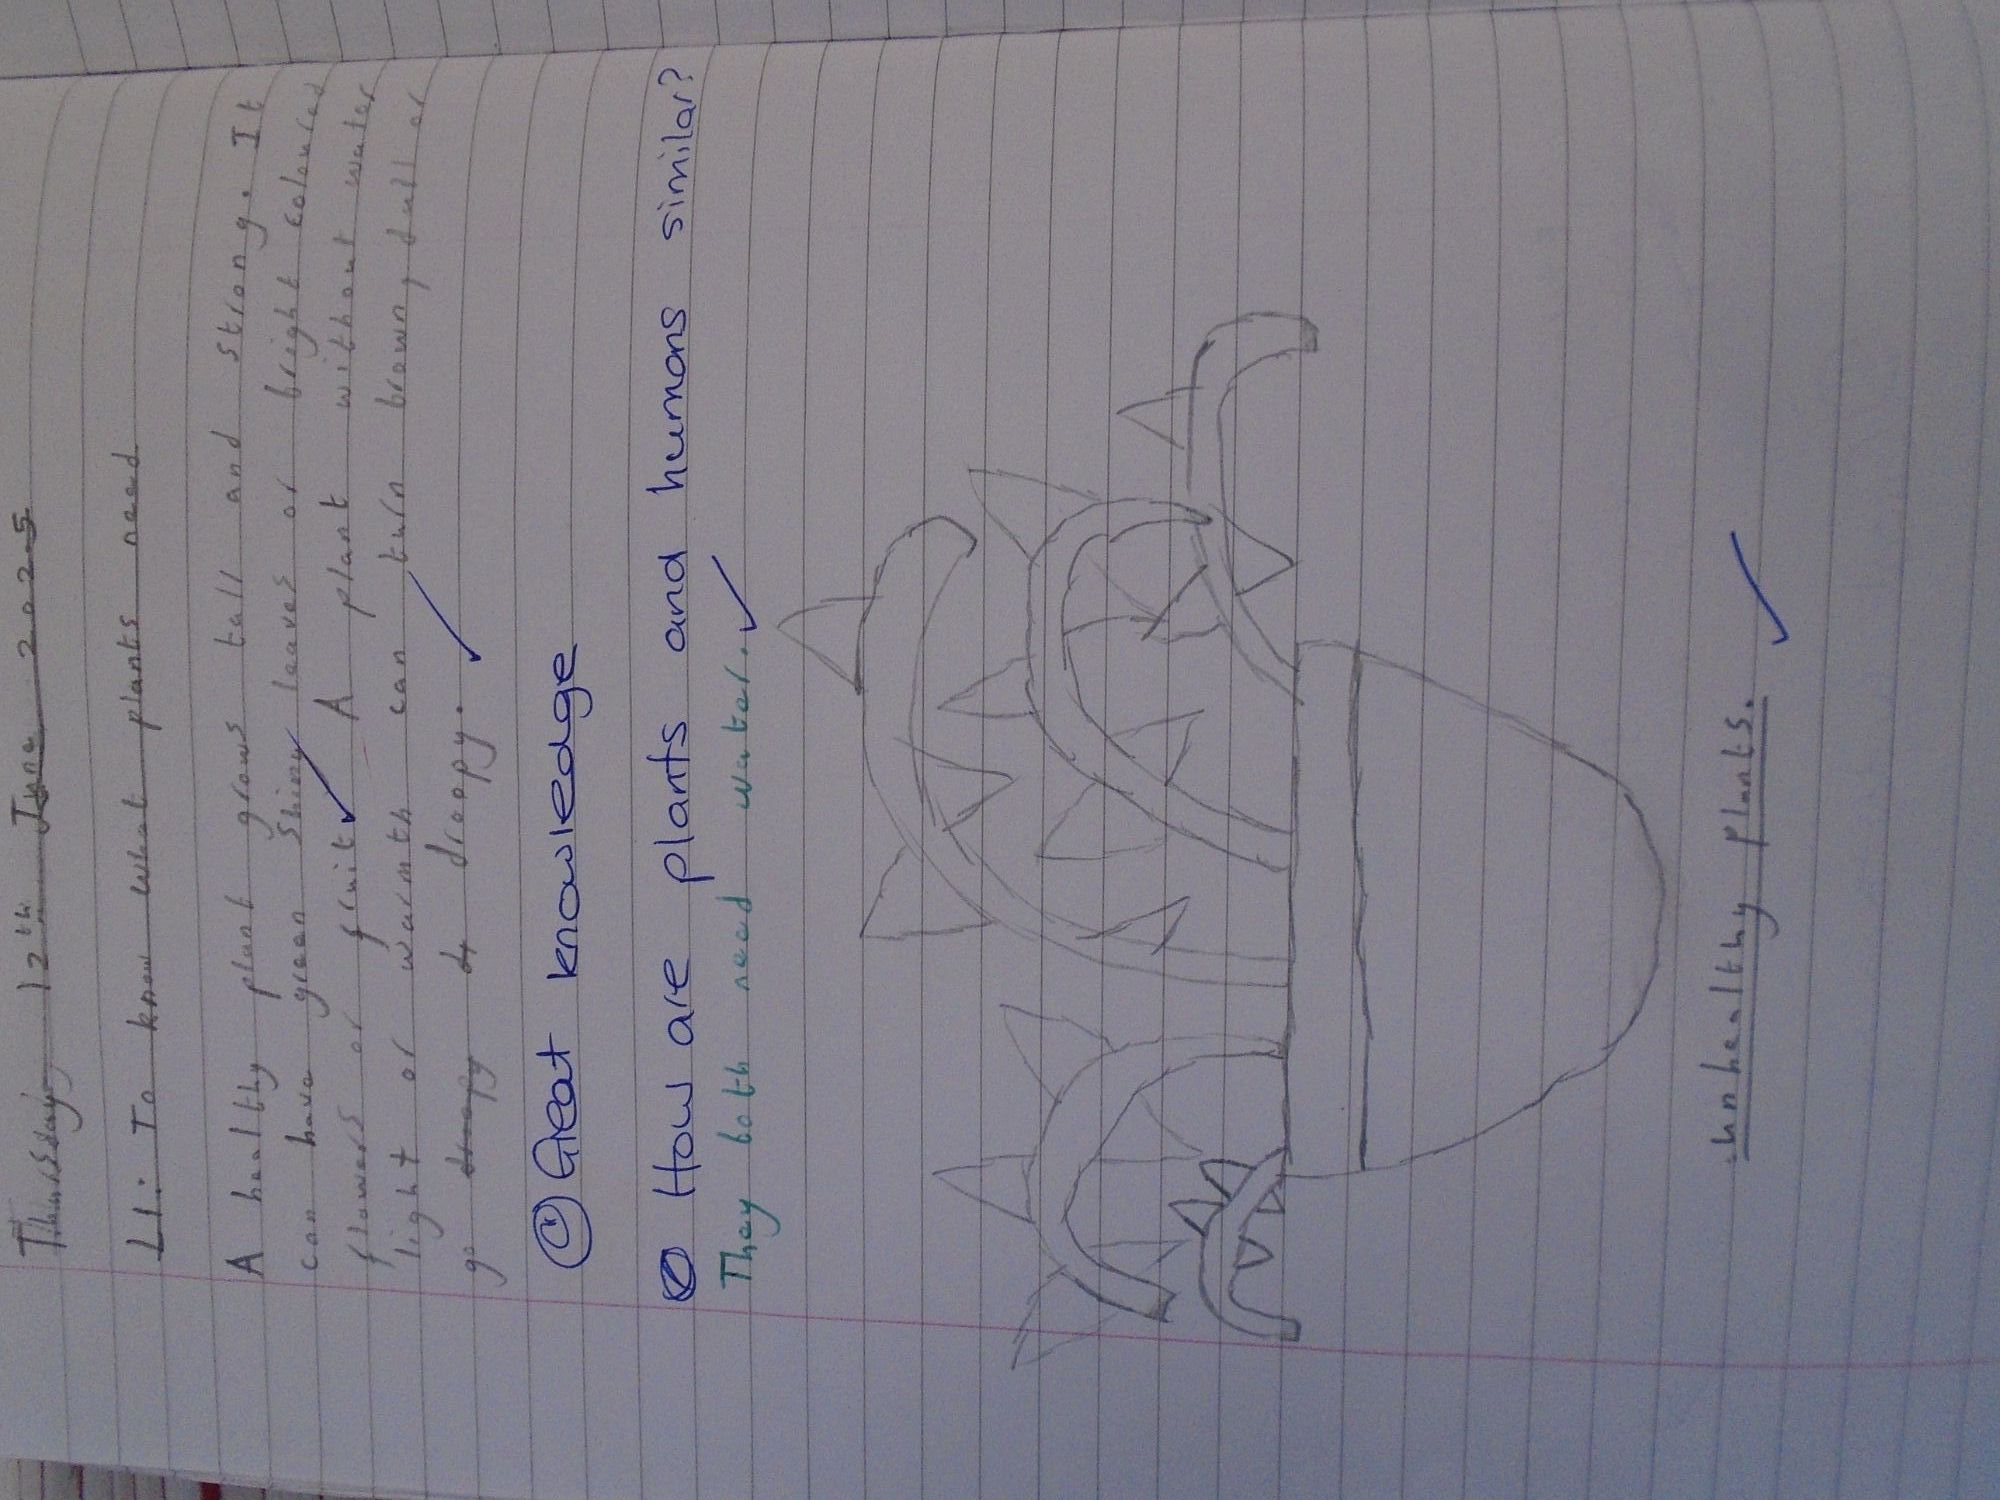 Thursday 12th June 2025
LI: To know what plants need
A healthy plant grows tall and strong. It
can have green shiny leaves or bright coloured
flowers or fruit. A plant without water
light or warmth can turn brown, dull or
go droopy.
Great knowledge
How are plants and humans similar?
They both need water.
unhealthy plants.